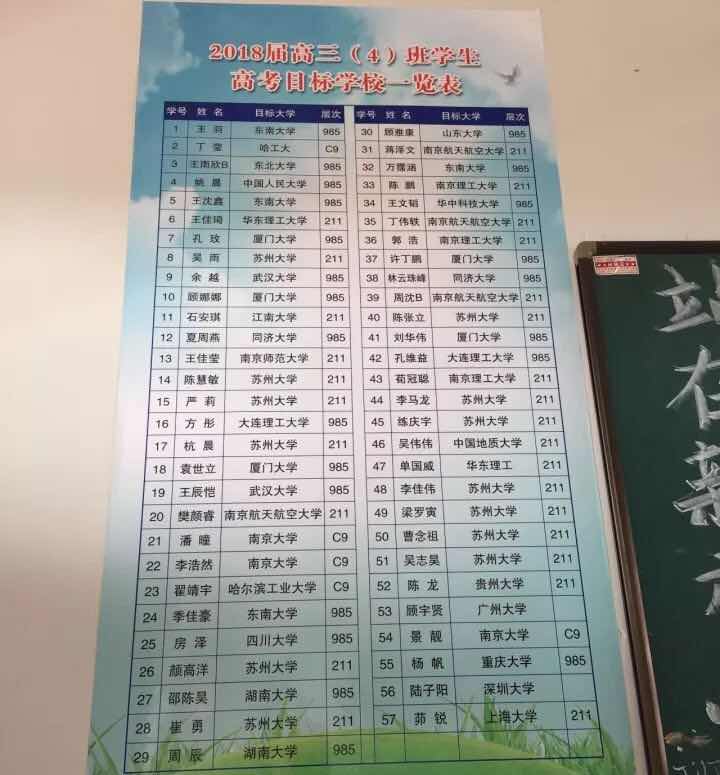 2018届高三（4）班学生
高考目标学校一览表
学号 姓名 目标大学 层次
1 王羽 东南大学 985
2 丁莹 哈工大 C9
3 王南欣B 东北大学 985
4 姚晨 中国人民大学 985
5 王沈鑫 东南大学 985
6 王佳琦 华东理工大学 211
7 孔玟 厦门大学 985
8 吴雨 苏州大学 211
9 余越 武汉大学 985
10 顾娜娜 厦门大学 985
11 石安琪 江南大学 211
12 夏周燕 同济大学 985
13 王佳莹 南京师范大学 211
14 陈慧敏 苏州大学 211
15 严莉 苏州大学 211
16 方彤 大连理工大学 985
17 杭晨 苏州大学 211
18 袁世立 厦门大学 985
19 王辰恺 武汉大学 985
20 樊颜睿 南京航天航空大学 211
21 潘曈 南京大学 C9
22 李浩然 南京大学 C9
23 翟靖宇 哈尔滨工业大学 C9
24 季佳豪 东南大学 985
25 房泽 四川大学 985
26 颉高洋 苏州大学 211
27 邵陈昊 湖南大学 985
28 崔勇 苏州大学 211
29 周辰 湖南大学 985
学号 姓名 目标大学 层次
30 顾雅康 山东大学 985
31 蒋泽文 南京航天航空大学 211
32 万霈涵 东南大学 985
33 陈鹏 南京理工大学 211
34 王文韬 华中科技大学 985
35 丁伟轶 南京航天航空大学 211
36 郭浩 南京理工大学 211
37 许丁鹏 厦门大学 985
38 林云珠峰 同济大学 985
39 周沈B 南京航天航空大学 211
40 陈张立 苏州大学 211
41 刘华伟 厦门大学 985
42 孔维益 大连理工大学 985
43 荀冠聪 南京理工大学 211
44 李马龙 苏州大学 211
45 练庆宇 苏州大学 211
46 吴伟伟 中国地质大学 211
47 单国威 华东理工 211
48 李佳伟 苏州大学 211
49 梁罗寅 苏州大学 211
50 曹念祖 苏州大学 211
51 吴志昊 苏州大学 211
52 陈龙 贵州大学 211
53 顾宇贤 广州大学
54 景靓 南京大学 C9
55 杨帆 重庆大学 985
56 陆子阳 深圳大学
57 茆锐 上海大学 211
站
在